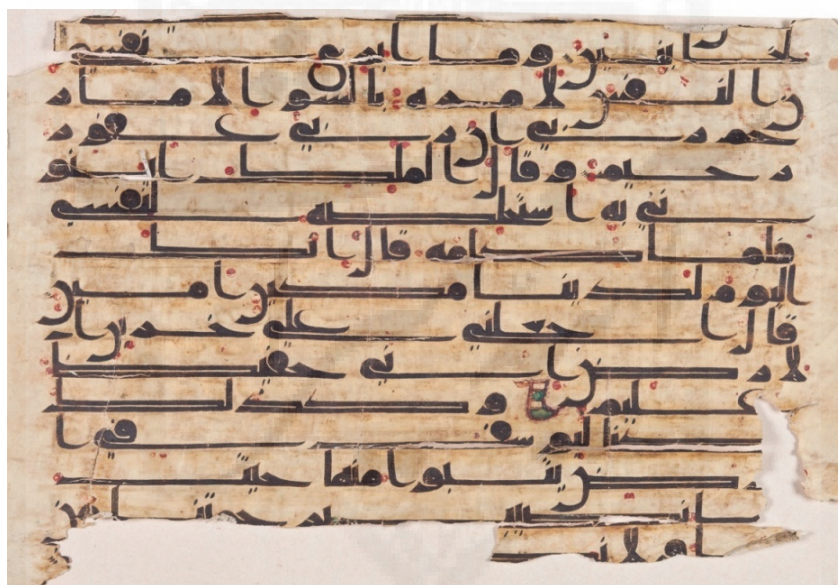 لخاىنين وما ابرى نفسي
ان النفس لامره بالسو الا ما ر
حم ربي ان ربي غفور
رحيم وقال الملك ايتو
ني به استخلصه لنفسي
فلما كلمه قال انك
اليوم لدينا مكين امين
قال اجعلني على خزاين ا
لارض اني حفيظ
عليم وكذلك
مكنا ليوسف في ا
لارض يتبوا منها حيث
يشا نصيب برحمتنا من
نشا ولا نضيع